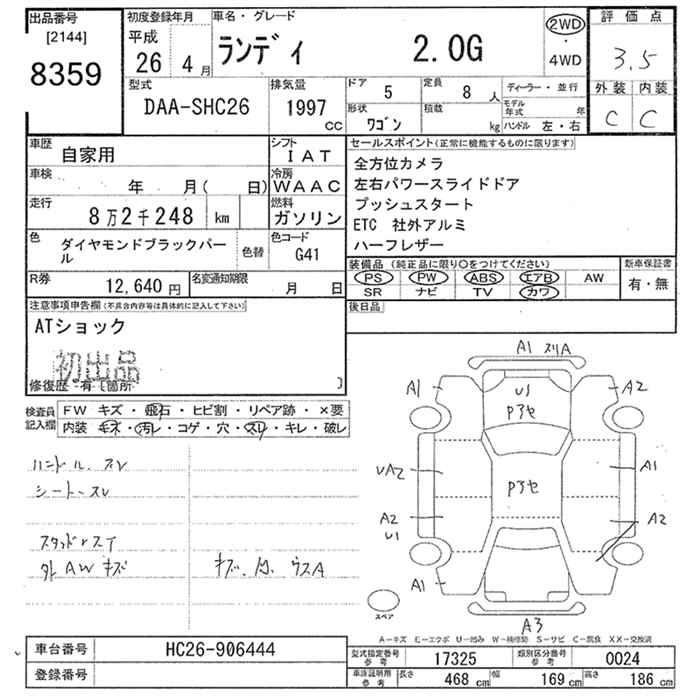 出品番号
[2144]
8359
初度登録年月
平成
26年 4月
車名・グレード
ランディ 2.0G
2WD
・
4WD
評価点
3.5
外装 内装
C C
型式
DAA-SHC26
排気量
1997 cc
ドア
5
定員
8人
形状
ワゴン
積載
kg
ディーラー・並行
モデル年式 年
ハンドル 左・右
車歴
自家用
シフト
IAT
車検 年 月( 日)
冷房
WAAC
走行
8万2千248 km
燃料
ガソリン
色
ダイヤモンドブラックパール
色替
色コード
G41
R券
12,640円
名変通知期限
月 日
セールスポイント(正常に機能するものに限ります)
全方位カメラ
左右パワースライドドア
プッシュスタート
ETC 社外アルミ
ハーフレザー
装備品(純正品に限り○をつけてください)
PS PW ABS エアB AW
SR ナビ TV カワ
新車保証書
有・無
後日品
注意事項申告欄(不具合内容等は具体的に記入して下さい)
ATショック
初出品
修復歴 有[箇所 ]
検査員記入欄
FW キズ・飛石・ヒビ割・リペア跡・×要
内装 キズ・汚レ・コゲ・穴・スレ・キレ・破レ
ハンドル、スレ
シート、スレ
スタッドレスT
外AWキズ
A1 スリA
A1
U1
Pアセ
A2
UA2
Pアセ
A1
A2
U1
A2
A1
A3
スペア
A-キズ E-エクボ U-凹み W-補修跡 S-サビ C-腐食 XX-交換済
車台番号
HC26-906444
登録番号
型式指定番号
参考
17325
類別区分番号
参考
0024
車庫証明用
参考
長さ
468 cm
幅
169 cm
高さ
186 cm